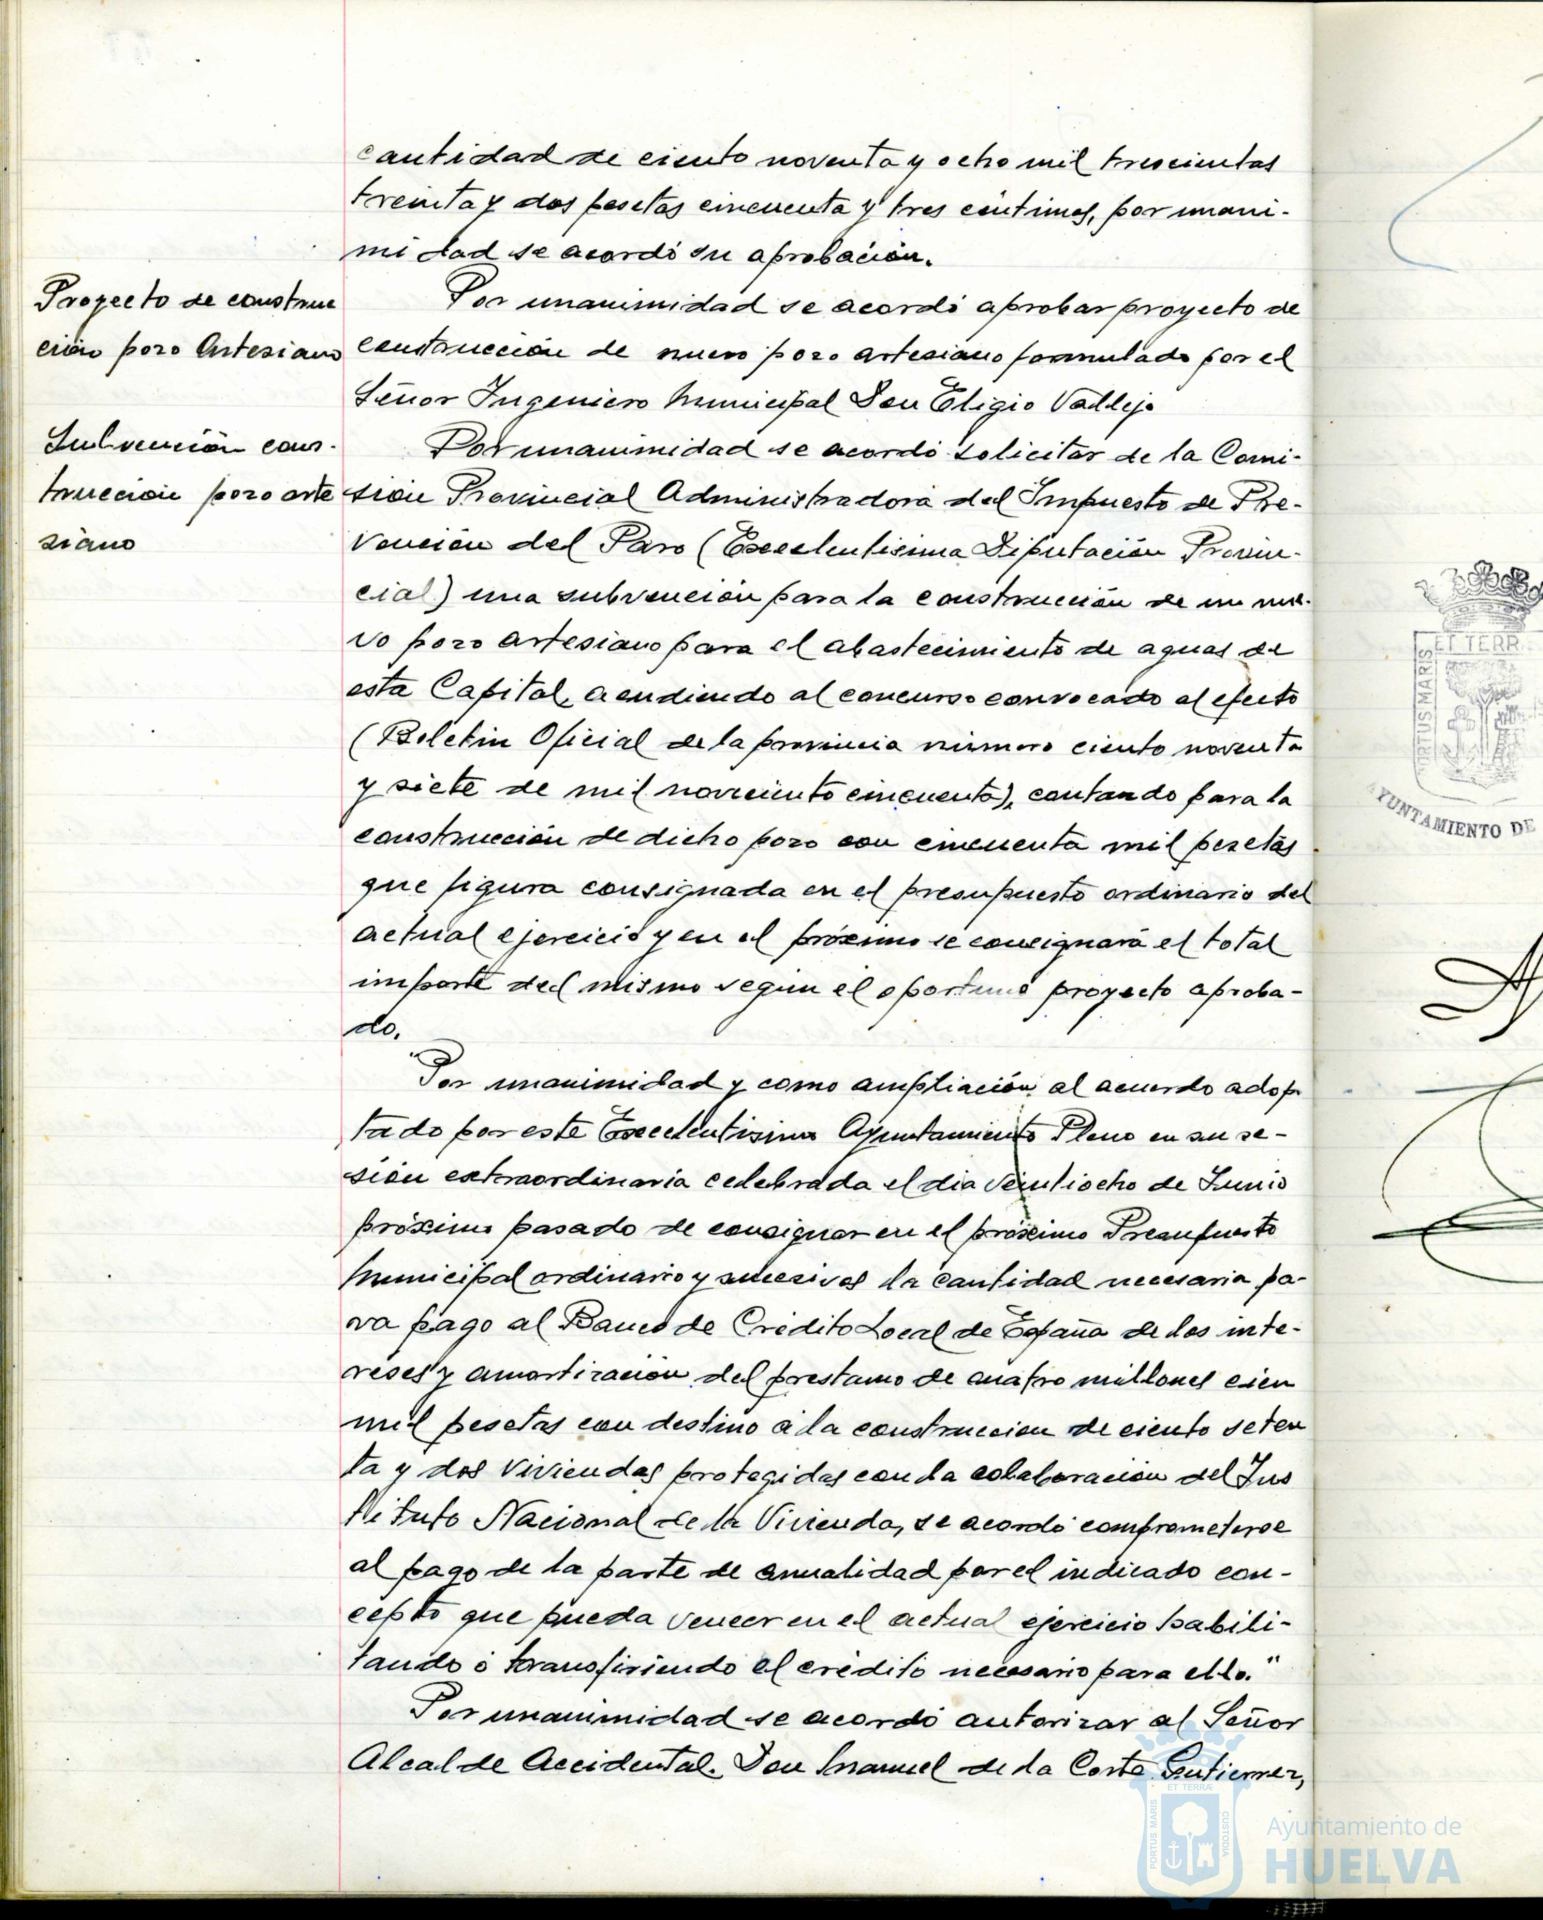 cantidad de ciento noventa y ocho mil trescientas
treinta y dos pesetas cincuenta y tres céntimos, por unani-
midad se acordó su aprobación.
Proyecto de construc
ción pozo Artesiano
Por unanimidad se acordó aprobar proyecto de
construcción de nuevo pozo artesiano formulado por el
Señor Ingeniero Municipal Don Eligio Vallejo
Subvención cons-
trucción pozo arte
siano
Por unanimidad se acordó solicitar de la Comi-
sión Provincial Administradora del Impuesto de Pre-
vención del Paro (Excelentísima Diputación Provin-
cial) una subvención para la construcción de un nue-
vo pozo artesiano para el abastecimiento de aguas de
esta Capital, acudiendo al concurso convocado al efecto
(Boletín Oficial de la provincia número ciento noventa
y siete de mil noveciento cincuenta), contando para la
construcción de dicho pozo con cincuenta mil pesetas
que figura consignada en el presupuesto ordinario del
actual ejercicio y en el próximo se consignará el total
importe del mismo según el oportuno proyecto aproba-
do.
"Por unanimidad y como ampliación al acuerdo adop
tado por este Excelentísimo Ayuntamiento Pleno en su se-
sión extraordinaria celebrada el dia veintiocho de Junio
próximo pasado de consignar en el próximo Presupuesto
Municipal ordinario y sucesivos la cantidad necesaria pa-
ra pago al Banco de Crédito Local de España de los inte-
reses y amortización del prestamo de cuatro millones cien
mil pesetas con destino a la construccion de ciento seten
ta y dos viviendas protegidas con la colaboración del Ins
tituto Nacional de la Vivienda, se acordó comprometerse
al pago de la parte de anualidad por el indicado con-
cepto que pueda vencer en el actual ejercicio habili-
tando ó transfiriendo el crédito necesario para ello."
Por unanimidad se acordó autorizar al Señor
Alcalde Accidental. Don Manuel de la Corte Gutierrez,
ET TERR
PORTUS MARIS
AYUNTAMIENTO DE
ET TERRÆ
PORTUS MARIS
CUSTODIA
Ayuntamiento de
HUELVA